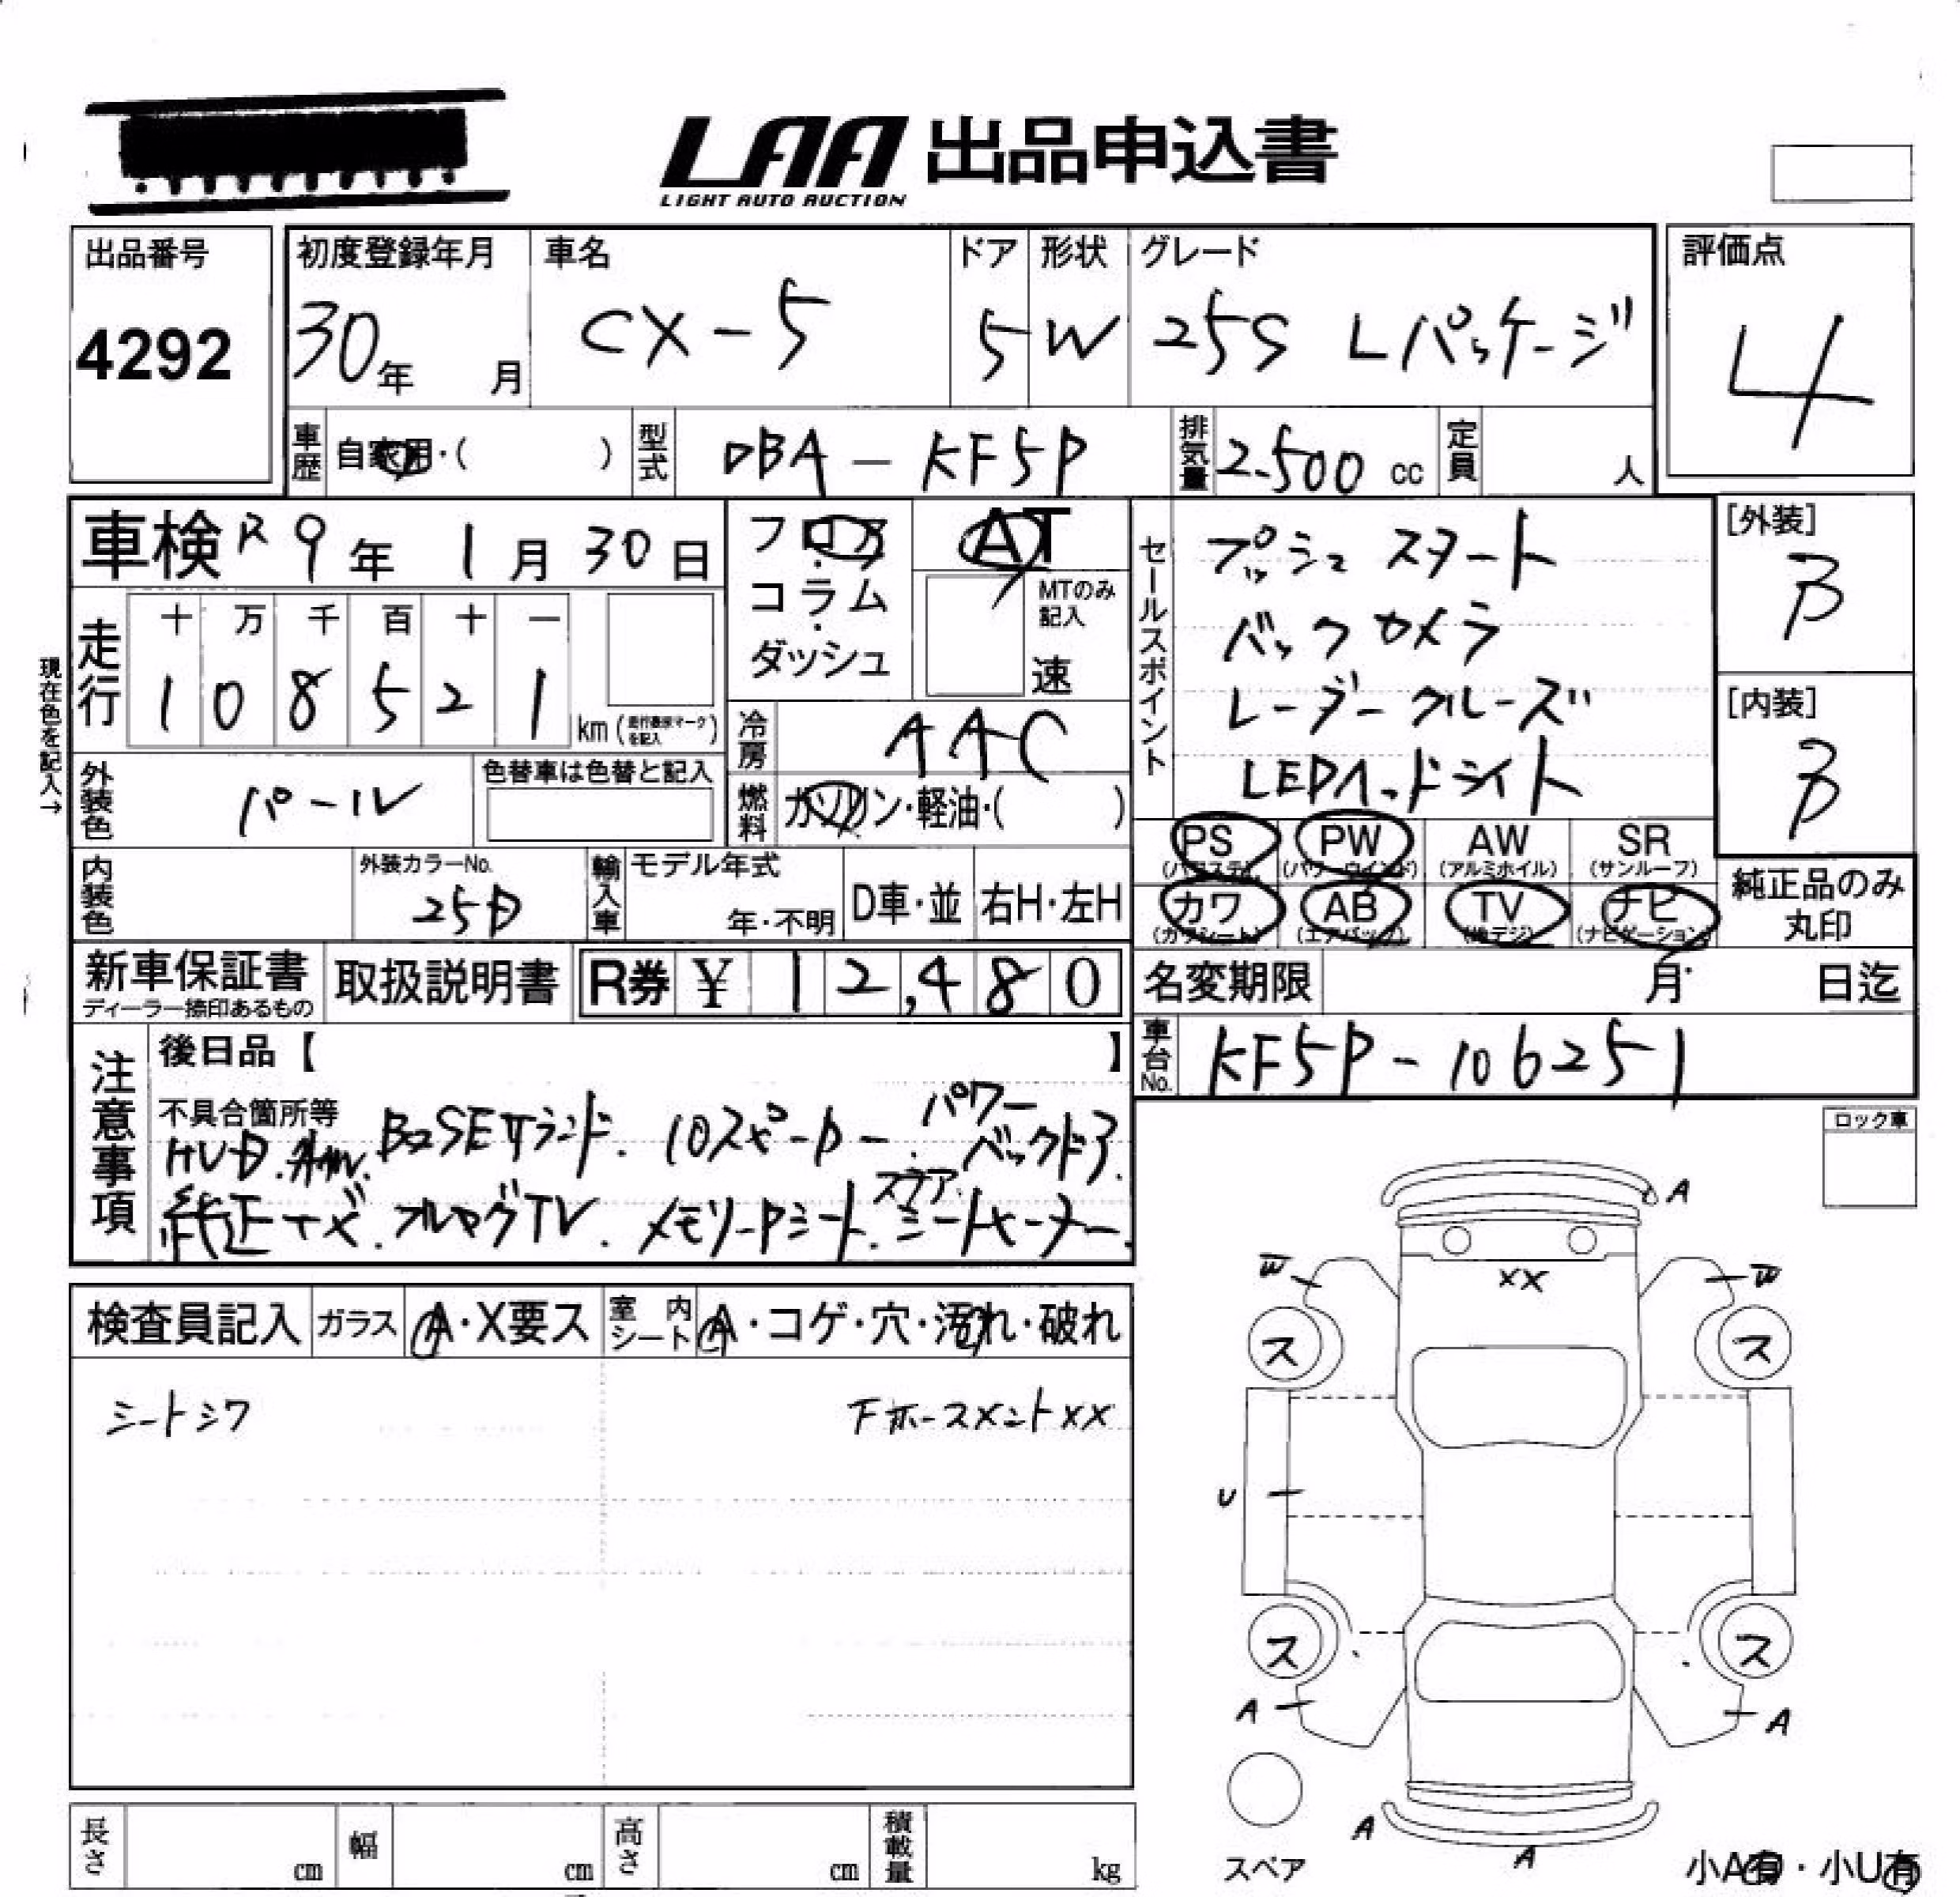 LAA 出品申込書
LIGHT AUTO AUCTION
出品番号
4292
初度登録年月
30年 月
車名
CX-5
ドア
5
形状
W
グレード
25S Lパッケージ
評価点
4
車歴 自家用・( )
型式 DBA-KF5P
排気量 2.500 cc
定員 人
車検 R9年 1月 30日
フロア・コラム・ダッシュ
AT
MTのみ記入
速
セールスポイント
プッシュスタート
バックカメラ
レーダークルーズ
LEDヘッドライト
[外装]
B
[内装]
B
現在色を記入→
走行
十 万 千 百 十 一
1 0 8 5 2 1 km (走行表示マークを記入)
冷房 AAC
外装色 パール
色替車は色替と記入
燃料 ガソリン・軽油・( )
PS (パワステ) PW (パワーウインド) AW (アルミホイル) SR (サンルーフ)
カワ (カワシート) AB (エアバック) TV (地デジ) ナビ (ナビゲーション)
純正品のみ丸印
内装色
外装カラーNo.
25D
輸入車 モデル年式
年・不明
D車・並
右H・左H
新車保証書
ディーラー捺印あるもの
取扱説明書
R券 ¥ 12,480
名変期限 月 日迄
車台No. KF5P-106251
注意事項
後日品【 】
不具合箇所等
BOSEサウンド. 10スピーカー. パワーバックドア.
HUD.
純正ナビ. フルセグTV. メモリーPシート. ステア. シートヒーター.
ロック車
検査員記入 ガラス A・X要ス 室内シート A・コゲ・穴・汚れ・破れ
シートシワ
下ホースメントXX
A
W
W
XX
ス
ス
U
ス
ス
A
A
A
A
スペア
小A有・小U有
長さ cm 幅 cm 高さ cm 積載量 kg